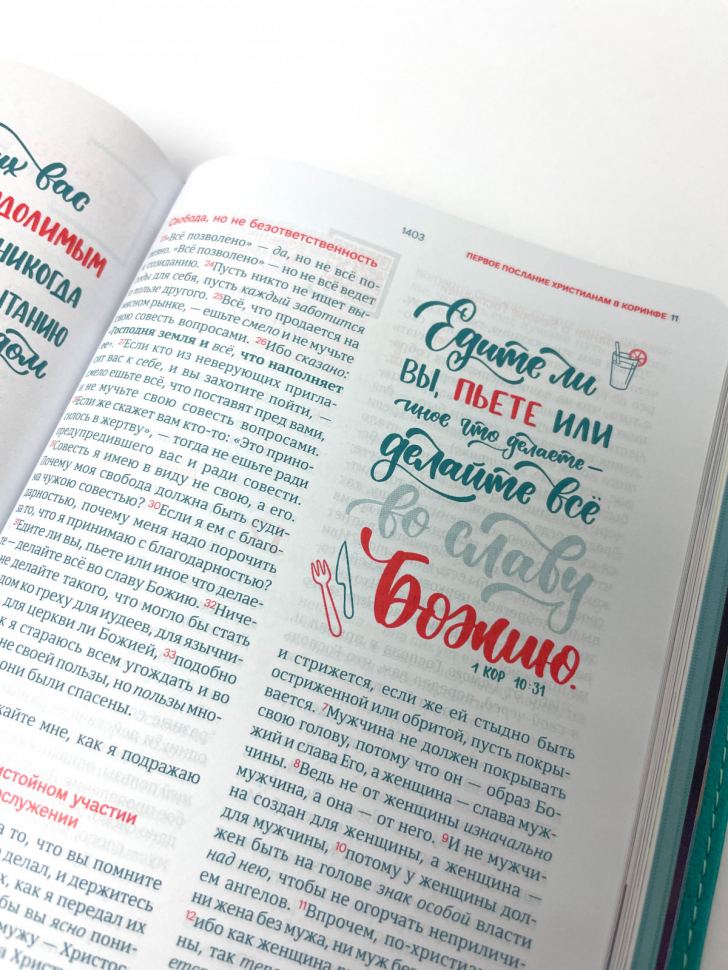 их вас
долимым
никогда
ытанию
1403
ПЕРВОЕ ПОСЛАНИЕ ХРИСТИАНАМ В КОРИНФЕ 11
Свобода, но не безответственность
«Всё позволено» — да, но не всё по-
лезно. «Всё позволено» — но не всё ведет
к созиданию. 24Пусть никто не ищет вы-
годы для себя, пусть каждый заботится
о пользе другого. 25Всё, что продается на
мясном рынке, — ешьте смело и не мучьте
свою совесть вопросами. 26Ибо сказано:
«Господня земля и всё, что наполняет
ее». 27Если кто из неверующих пригла-
сит вас к себе, и вы захотите пойти, —
смело ешьте всё, что поставят пред вами,
и не мучьте свою совесть вопросами.
28Если же скажет вам кто-то: «Это прино-
силось в жертву», — тогда не ешьте ради
предупредившего вас и ради совести.
29Совесть я имею в виду не свою, а его.
Почему моя свобода должна быть суди-
ма чужою совестью? 30Если я ем с благо-
дарностью, почему меня надо порочить
за то, что я принимаю с благодарностью?
31Едите ли вы, пьете или иное что делае-
те — делайте всё во славу Божию. 32Ниче-
не делайте такого, что могло бы стать
дом ко греху для иудеев, для язычни-
для церкви ли Божией, 33подобно
к я стараюсь всем угождать и во
не своей пользы, но пользы мно-
они были спасены.
жайте мне, как я подражаю
истойном участии
ослужении
а то, что вы помните
делал, и держитесь
х, как я передал их
бы вы ясно пони-
мужу — Христос
Едите ли
ВЫ, ПЬЕТЕ ИЛИ
иное что делаете —
делайте всё
во славу
Божию.
1 КОР 10:31
и стрижется, если же ей стыдно быть
остриженной или обритой, пусть покры-
вается. 7Мужчина не должен покрывать
свою голову, потому что он — образ Бо-
жий и слава Его, а женщина — слава муж-
чины. 8Ведь не от женщины изначально
мужчина, а она — от него. 9И не мужчи-
на создан для женщины, а женщина —
для мужчины, 10потому у женщины дол-
жен быть на голове знак особой власти
над нею, чтобы не огорчать неприличи-
ем ангелов. 11Впрочем, по-христиа
ни жена без мужа, ни муж без
12ибо как женщина
ны, так